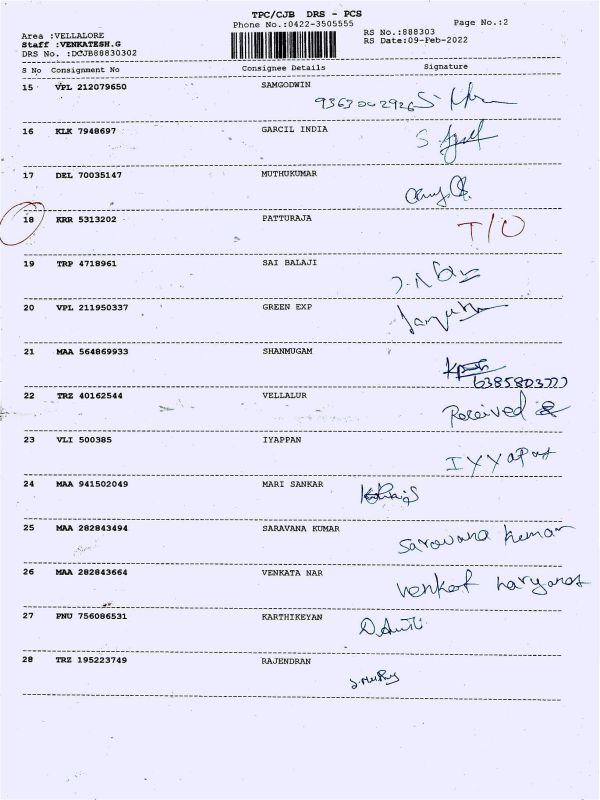 TPC/CJB DRS - PCS
Phone No.:0422-3505555
Page No.:2
Area :VELLALORE
RS No.:888303
Staff :VENKATESH.G
RS Date:09-Feb-2022
DRS No. :DCJB88830302
S No Consignment No Consignee Details Signature
15 VPL 212079650 SAMGODWIN
9363002926
16 KLK 7948697 GARCIL INDIA
17 DEL 70035147 MUTHUKUMAR
18 KRR 5313202 PATTURAJA T/O
19 TRP 4718961 SAI BALAJI
20 VPL 211950337 GREEN EXP
21 MAA 564869933 SHANMUGAM
22 TRZ 40162544 VELLALUR
Received
23 VLI 500385 IYYAPPAN
24 MAA 941502049 MARI SANKAR
25 MAA 282843494 SARAVANA KUMAR
Saravana kumar
26 MAA 282843664 VENKATA NAR
27 PNU 756086531 KARTHIKEYAN
28 TRZ 195223749 RAJENDRAN